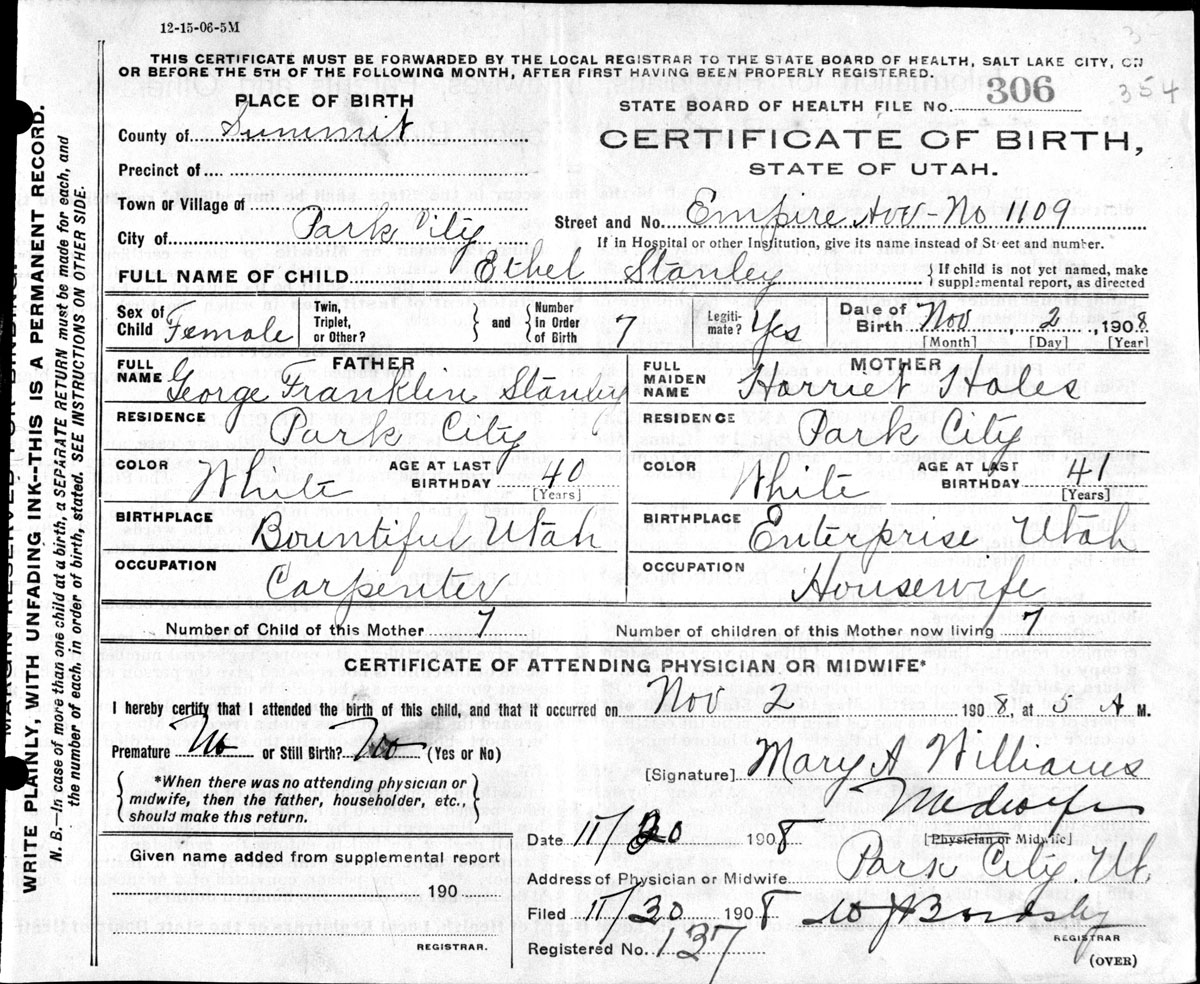 12-15-06-5M
THIS CERTIFICATE MUST BE FORWARDED BY THE LOCAL REGISTRAR TO THE STATE BOARD OF HEALTH, SALT LAKE CITY, ON
OR BEFORE THE 5TH OF THE FOLLOWING MONTH, AFTER FIRST HAVING BEEN PROPERLY REGISTERED.
PLACE OF BIRTH
STATE BOARD OF HEALTH FILE NO. 306 354
County of Summit
CERTIFICATE OF BIRTH,
STATE OF UTAH.
Precinct of
Town or Village of
City of Park City
Street and No. Empire Ave - No 1109
If in Hospital or other Institution, give its name instead of Street and number.
FULL NAME OF CHILD Ethel Stanley } If child is not yet named, make supplemental report, as directed
Sex of Child Female Twin, Triplet, or Other? } and { Number in Order of Birth 7 Legitimate? Yes Date of Birth Nov 2, 1908
[Month] [Day] [Year]
FATHER
FULL NAME George Franklin Stanley
MOTHER
FULL MAIDEN NAME Harriet Hales
RESIDENCE Park City
RESIDENCE Park City
COLOR White AGE AT LAST BIRTHDAY 40 [Years]
COLOR White AGE AT LAST BIRTHDAY 41 [Years]
BIRTHPLACE Bountiful Utah
BIRTHPLACE Enterprise Utah
OCCUPATION Carpenter
OCCUPATION Housewife
Number of Child of this Mother 7
Number of children of this Mother now living 7
CERTIFICATE OF ATTENDING PHYSICIAN OR MIDWIFE*
I hereby certify that I attended the birth of this child, and that it occurred on Nov 2 1908, at 3 A M.
Premature No or Still Birth? No (Yes or No)
*When there was no attending physician or midwife, then the father, householder, etc., should make this return.
[Signature] Mary A Williams
Midwife
[Physician or Midwife]
Date 11/30 1908
Given name added from supplemental report
190
REGISTRAR.
Address of Physician or Midwife Park City. Ut.
Filed 11/30 1908 W J Bardsley
REGISTRAR
Registered No. 137
(OVER)
MARGIN RESERVED FOR BINDING.
WRITE PLAINLY, WITH UNFADING INK--THIS IS A PERMANENT RECORD.
N. B.—In case of more than one child at a birth, a SEPARATE RETURN must be made for each, and
the number of each, in order of birth, stated. SEE INSTRUCTIONS ON OTHER SIDE.